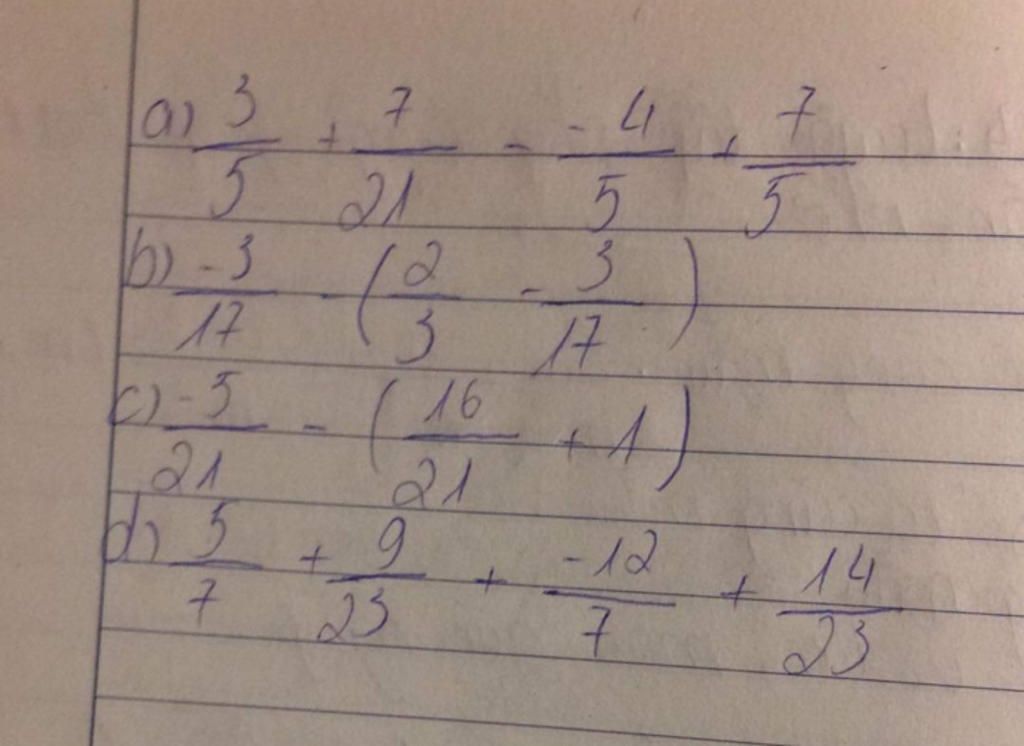 a) 3/5 + 7/21 - -4/5 + 7/5
b) -3/17 - (2/3 - 3/17)
c) -5/21 - (16/21 + 1)
d) 5/7 + 9/23 + -12/7 + 14/23